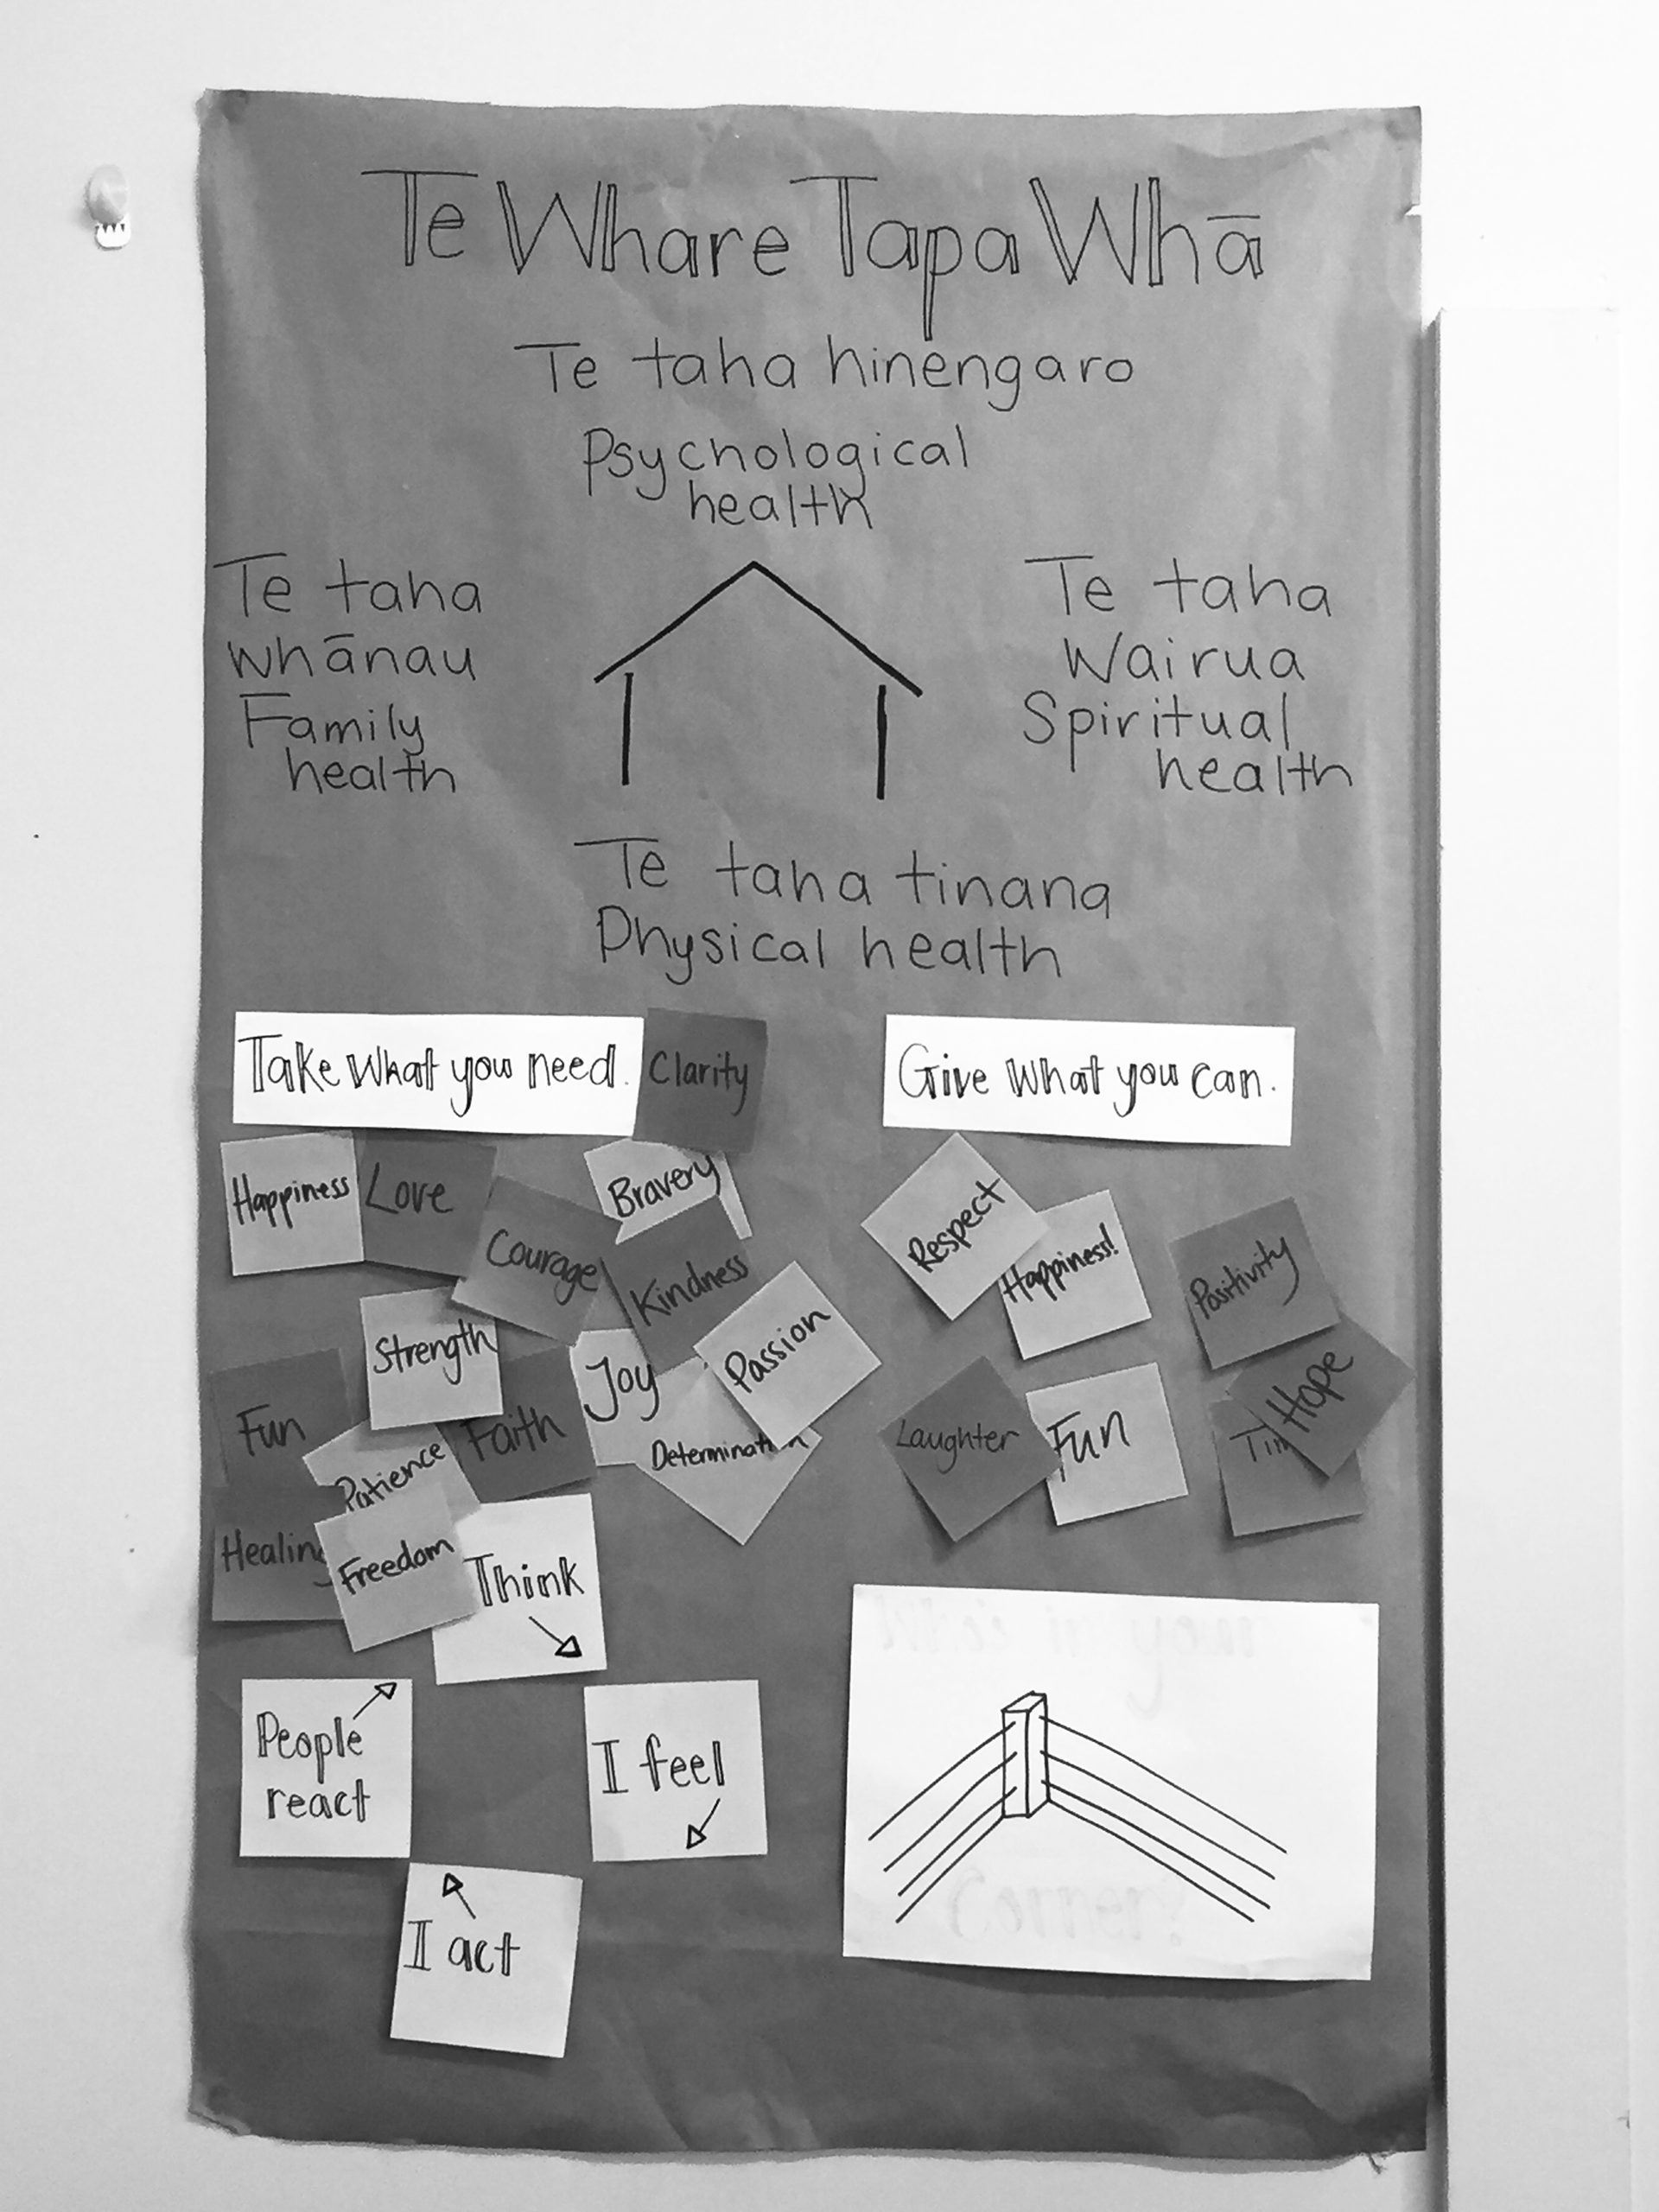 Te Whare Tapa Whā
Te taha hinengaro
Psychological
health
Te taha
whānau
Family
health
Te taha
Wairua
Spiritual
health
Te taha tinana
Physical health
Take what you need.
Clarity
Happiness
Love
Courage
Bravery
Kindness
Strength
Joy
Passion
Fun
Patience
Faith
Healing
Freedom
Think
People
react
I feel
I act
Give what you can.
Respect
Happiness!
Positivity
Laughter
Fun
Hope